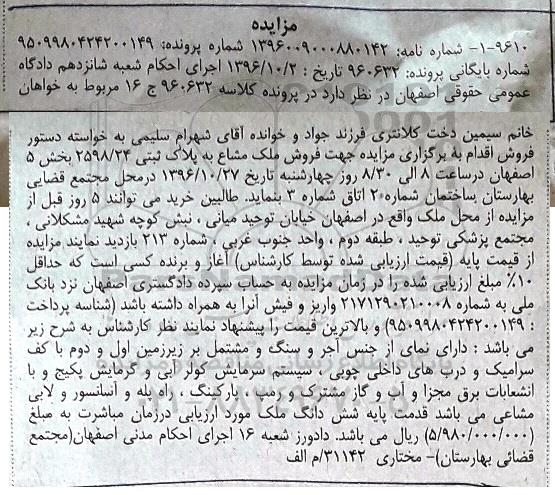 مزایده
۹۶۱۰-۱- شماره نامه: ۱۳۹۶۰۰۹۰۰۰۸۸۰۱۴۲ شماره پرونده: ۹۵۰۹۹۸۰۴۲۴۲۰۰۱۴۹
شماره بایگانی پرونده: ۹۶۰۶۳۲ تاریخ : ۱۳۹۶/۱۰/۲ اجرای احکام شعبه شانزدهم دادگاه
عمومی حقوقی اصفهان در نظر دارد در پرونده کلاسه ۹۶۰۶۳۲ ج ۱۶ مربوط به خواهان
خانم سیمین دخت کلانتری فرزند جواد و خوانده آقای شهرام سلیمی به خواسته دستور
فروش اقدام به برگزاری مزایده جهت فروش ملک مشاع به پلاک ثبتی ۲۵۹۸/۲۴ بخش ۵
اصفهان درساعت ۸ الی ۸/۳۰ روز چهارشنبه تاریخ ۱۳۹۶/۱۰/۲۷ درمحل مجتمع قضایی
بهارستان ساختمان شماره۲۰ اتاق شماره ۳ بنماید. طالبین خرید می توانند ۵ روز قبل از
مزایده از محل ملک واقع در اصفهان خیابان توحید میانی ، نبش کوچه شهید مشکلانی ،
مجتمع پزشکی توحید ، طبقه دوم ، واحد جنوب غربی ، شماره ۲۱۳ بازدید نمایند مزایده
از قیمت پایه (قیمت ارزیابی شده توسط کارشناس) آغاز و برنده کسی است که حداقل
۱۰٪ مبلغ ارزیابی شده را در زمان مزایده به حساب سپرده دادگستری اصفهان نزد بانک
ملی به شماره ۲۱۷۱۲۹۰۲۱۰۰۰۸ واریز و فیش آنرا به همراه داشته باشد (شناسه پرداخت
: ۹۵۰۹۹۸۰۴۲۴۲۰۰۱۴۹) و بالاترین قیمت را پیشنهاد نمایند نظر کارشناس به شرح زیر
می باشد : دارای نمای از جنس آجر و سنگ و مشتمل بر زیرزمین اول و دوم با کف
سرامیک و درب های داخلی چوبی ، سیستم سرمایش کولر آبی و گرمایش پکیج و با
انشعابات برق مجزا و آب و گاز مشترک و رمپ ، پارکینگ ، راه پله و آسانسور و لابی
مشاعی می باشد قدمت پایه شش دانگ ملک مورد ارزیابی درزمان مباشرت به مبلغ
(۵/۹۸۰/۰۰۰/۰۰۰) ریال می باشد. دادورز شعبه ۱۶ اجرای احکام مدنی اصفهان(مجتمع
قضائی بهارستان)- مختاری ۳۱۱۴۲/م الف